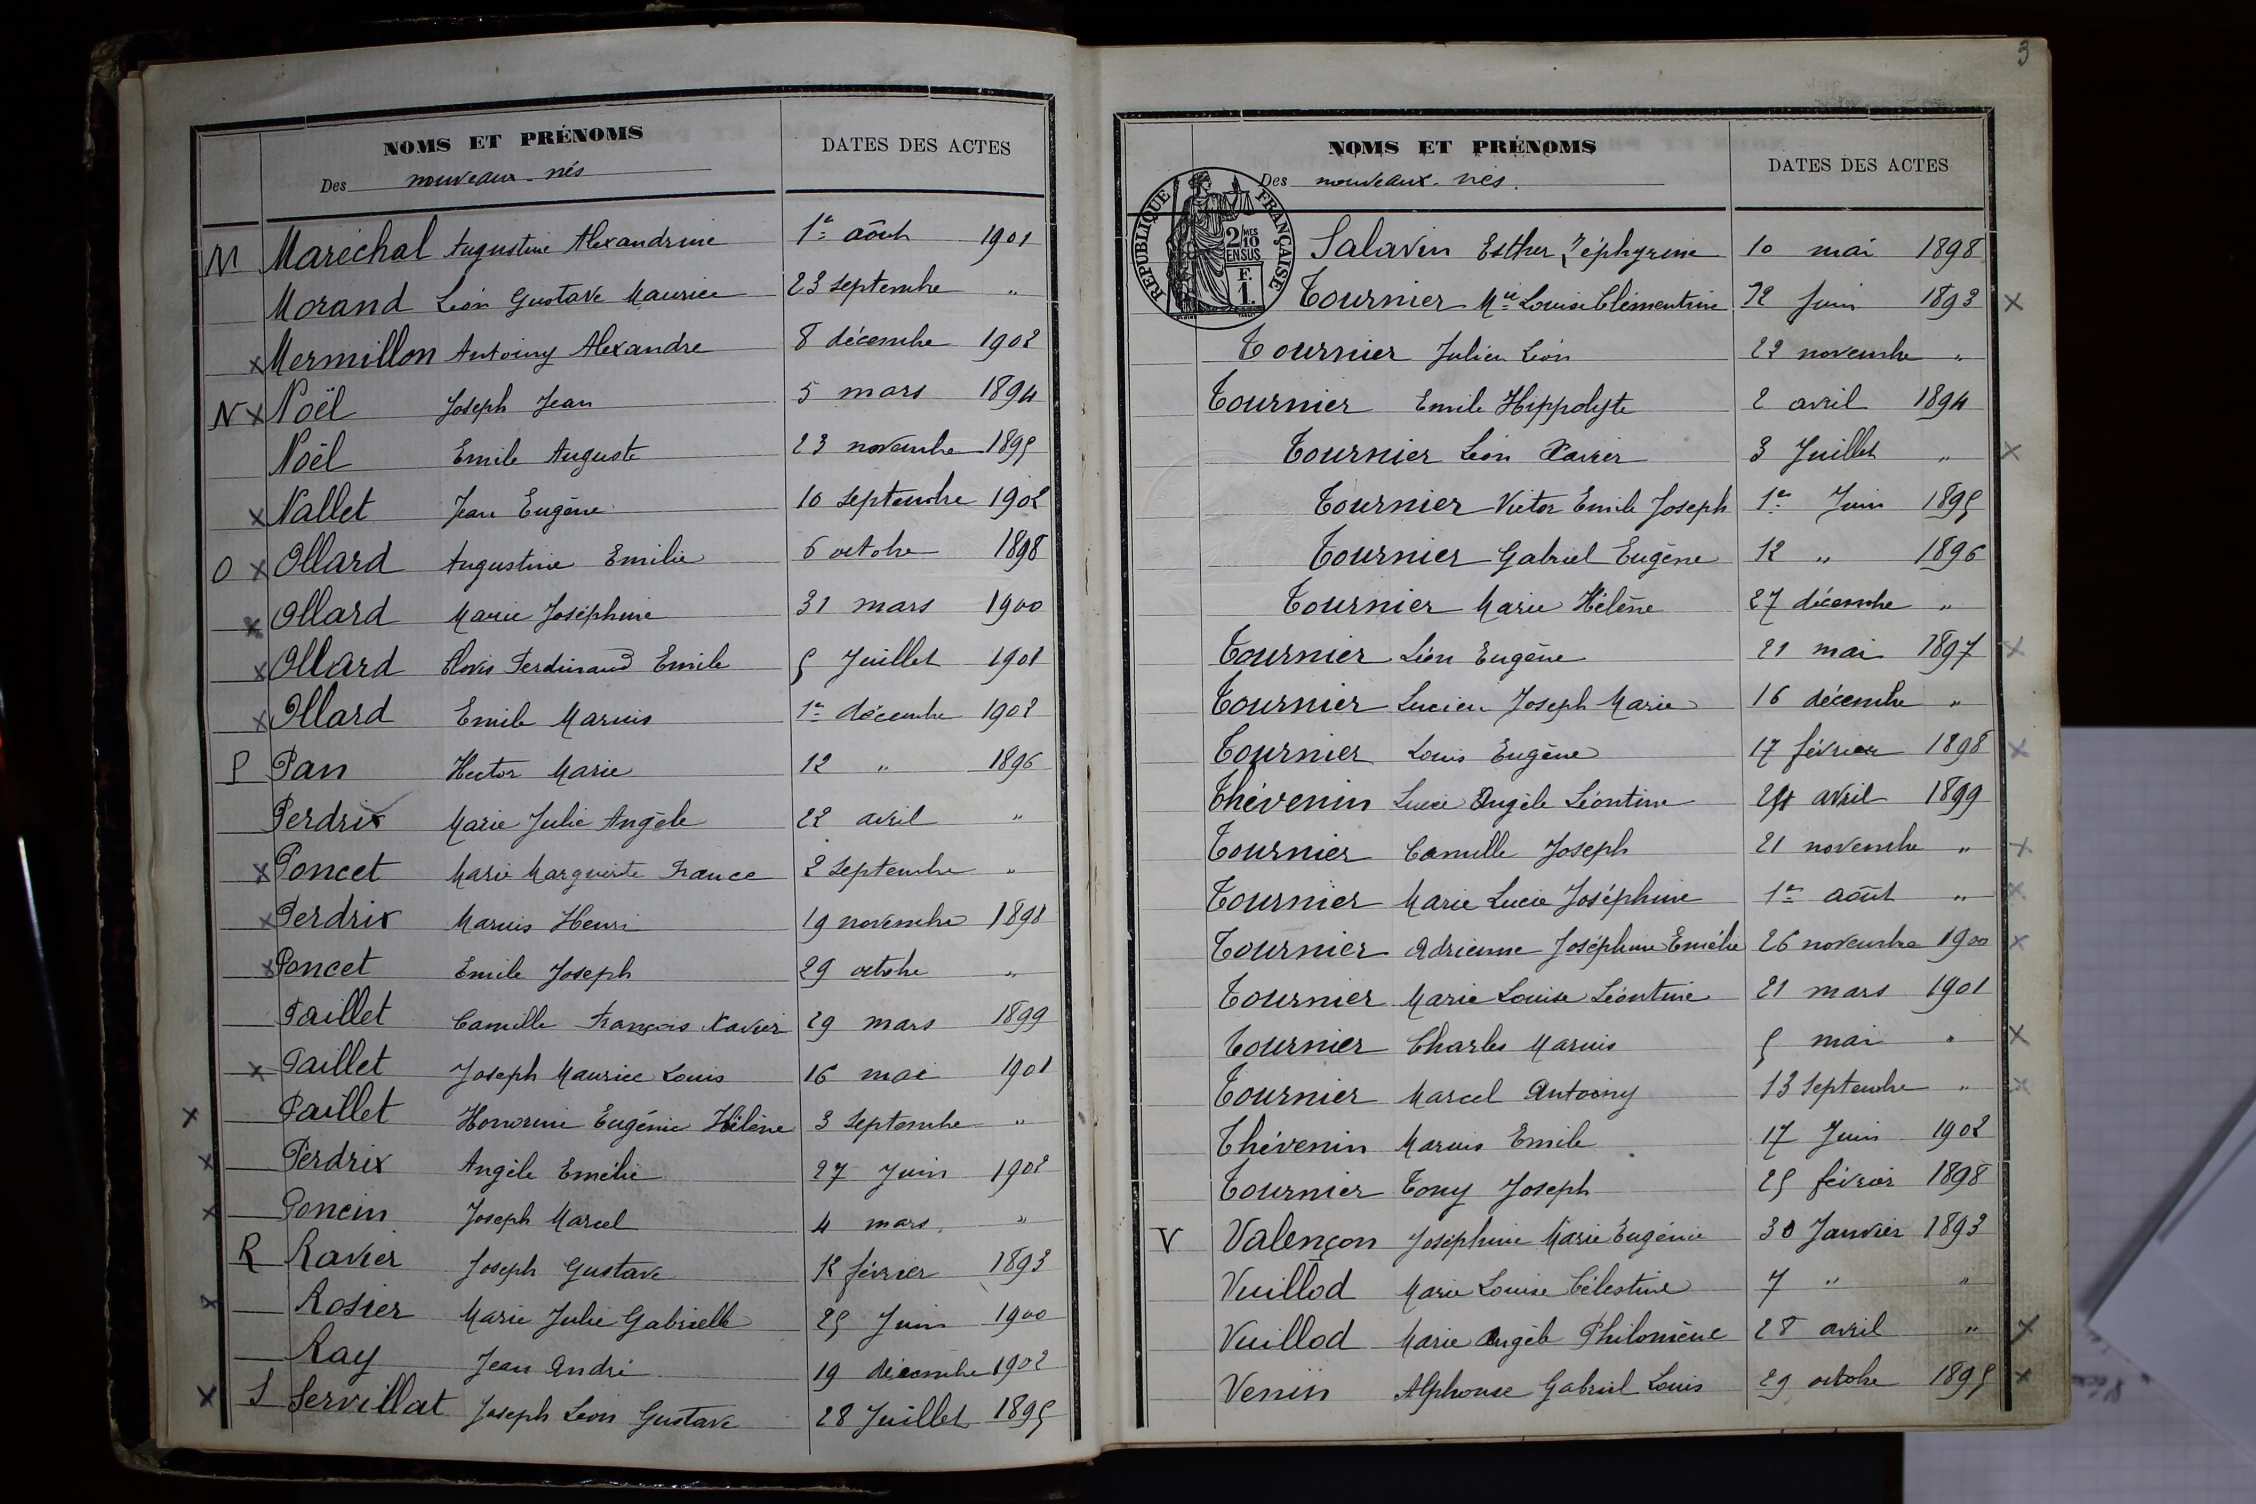 NOMS ET PRÉNOMS
Des nouveaux-nés
DATES DES ACTES
M Maréchal Augustine Alexandrine 1er août 1901
Morand Léon Gustave Maurice 23 septembre "
x Mermillon Antoiny Alexandre 8 décembre 1902
N x Noël Joseph Jean 5 mars 1894
Noël Emile Auguste 23 novembre 1895
x Nallet Jean Eugène 10 septembre 1902
O x Ollard Augustine Emilie 6 octobre 1898
x Ollard Marie Joséphine 31 mars 1900
x Ollard Clovis Ferdinand Emile 5 Juillet 1901
x Ollard Emile Marius 1er décembre 1902
P Pan Hector Marie 12 " 1896
Perdrix Marie Julie Angèle 22 avril "
x Poncet Marie Marguerite France 2 septembre "
x Perdrix Marius Henri 19 novembre 1898
x Poncet Emile Joseph 29 octobre "
Paillet Camille François Xavier 29 mars 1899
x Paillet Joseph Maurice Louis 16 mai 1901
x Paillet Honorine Eugénie Hélène 3 septembre "
x Perdrix Angèle Emélie 27 Juin 1902
x Poncin Joseph Marcel 4 mars "
R Ravier Joseph Gustave 12 février 1893
x Rosier Marie Julie Gabrielle 25 Juin 1900
Ray Jean André 19 décembre 1902
x S Servillat Joseph Léon Gustave 28 Juillet 1895
3
NOMS ET PRÉNOMS
Des nouveaux-nés.
DATES DES ACTES
REPUBLIQUE FRANÇAISE
2 MES
10
EN SUS
F.
1.
Salavin Esther Zéphyrine 10 mai 1898
Tournier Mie Louise Clémentine 12 Juin 1893 x
Tournier Julien Léon 22 novembre "
Tournier Emile Hippolyte 2 avril 1894
Tournier Léon Xavier 3 Juillet " x
Tournier Victor Emile Joseph 1er Juin 1895
Tournier Gabriel Eugène 12 " 1896
Tournier Marie Hélène 27 décembre "
Tournier Léon Eugène 21 mai 1897 x
Tournier Lucien Joseph Marie 16 décembre "
Tournier Louis Eugène 17 février 1898 x
Thévenin Lucie Angèle Léontine avril 1899
Tournier Camille Joseph 21 novembre " x
Tournier Marie Lucie Joséphine 1er août " x
Tournier Adrienne Joséphine Emélie 26 novembre 1900 x
Tournier Marie Louise Léontine 21 mars 1901
Tournier Charles Marius 5 mai " x
Tournier Marcel Antoiny 13 septembre " x
Thévenin Marius Emile 17 Juin 1902
Tournier Tony Joseph 25 février 1898
V Valençon Joséphine Marie Eugénie 30 Janvier 1893
Vuillod Marie Louise Célestine 7 " "
Vuillod Marie Angèle Philomène 28 avril " x
Venin Alphonse Gabriel Louis 29 octobre 1895 x